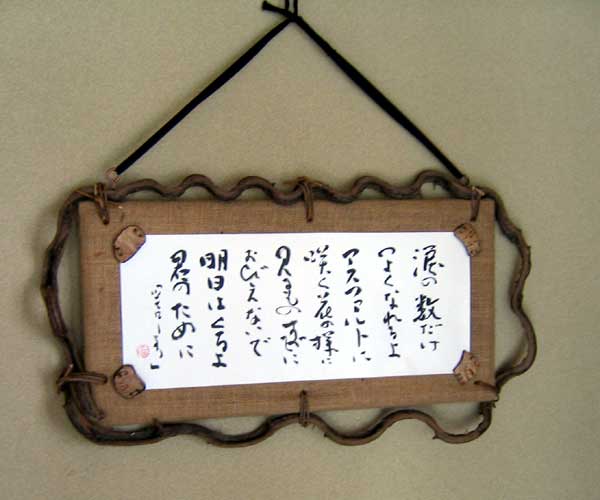 涙の数だけ
つよくなれるよ
アスファルトに
咲く花の様に
見るもの
おびえないで
明日はくるよ
君のために